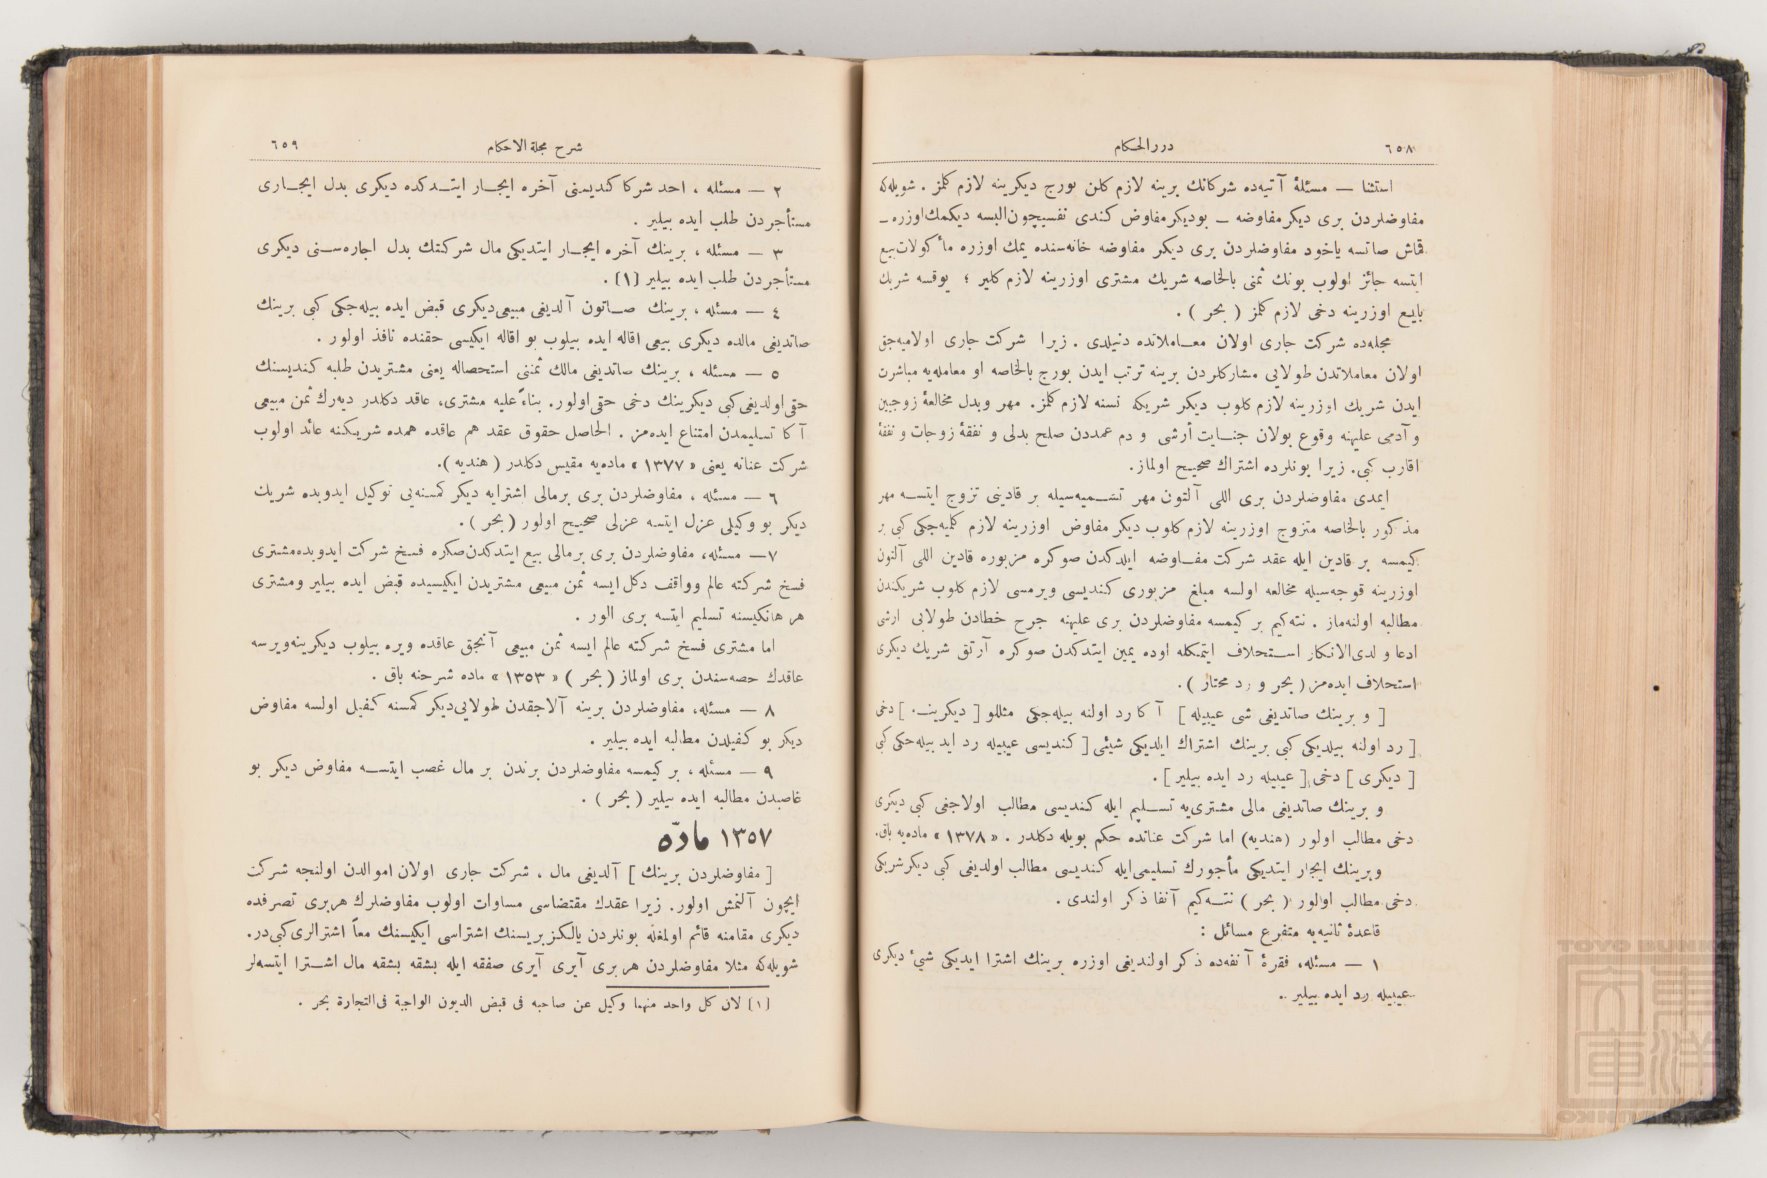 ٦٥٨
دررالحكام
استثنا — مسئلۀ آتيه‌ده شركانك برينه لازم كلن بورج ديكرينه لازم كلمز . شويله‌كه
مفاوضلردن برى ديكر مفاوضه — بوديكر مفاوض كندى نفسيچون البسه ديكمك اوزره —
قماش صاتسه ياخود مفاوضلردن برى ديكر مفاوضه خانه‌سنده يمك اوزره مأكولات بيع
ايتسه جائز اولوب بونك ثمنى بالخاصه شريك مشترى اوزرينه لازم كلير ؛ يوقسه شريك
بايع اوزرينه دخى لازم كلمز ( بحر ) .
مجله‌ده شركت جارى اولان معـاملاتده دنيلدى . زيرا شركت جارى اولاميه‌جق
اولان معاملاتدن طولايى مشاركلردن برينه ترتب ايدن بورج بالخاصه او معامله‌يه مباشرت
ايدن شريك اوزرينه لازم كلوب ديكر شريكه نسنه لازم كلمز. مهر وبدل مخالعۀ زوجين
و آدمى عليهنه وقوع بولان جنـايت أرشى و دم عمددن صلح بدلى و نفقۀ زوجات و نفقۀ
اقارب كبى. زيرا بونلرده اشتراك صحيح اولماز.
ايمدى مفاوضلردن برى اللى آلتون مهر تسـميه‌سيله بر قادينى تزوج ايتسـه مهر
مذكور بالخاصه متزوج اوزرينه لازم كلوب ديكر مفاوض اوزرينه لازم كلميه‌جكى كبى بر
كيمسه بر قادين ايله عقد شركت مفـاوضه ايلدكدن صوكره مزبوره قادين اللى آلتون
اوزرينه قوجه‌سيله مخالعه اولسه مبلغ مزبورى كنديسى ويرمسى لازم كلوب شريكندن
مطالبه اولنه‌ماز . نته‌كيم بر كيمسه مفاوضلردن برى عليهنه جرح خطادن طولايى ارشى
ادعا و لدى‌الانكار اسـتحلاف ايتمكله اوده يمين ايتدكدن صوكره آرتق شريك ديكرى
استحلاف ايده‌مز ( بحر و رد محتار ) .
[ و برينك صاتديغى شى عيبيله ] آكا رد اولنه بيله‌جكى مثللو [ ديكرينه ] دخى
[ رد اولنه بيلديكى كبى برينك اشتراك ايلديكى شيئى [ كنديسى عيبيله رد ايد بيله‌جكى كبى
[ ديكرى ] دخى [ عيبيله رد ايده بيلير ] .
و برينك صاتديغى مالى مشترى‌يه تسـليم ايله كنديسى مطالب اولاجغى كبى ديكرى
دخى مطالب اولور (هنديه) اما شركت عنانده حكم بويله دكلدر . « ١٣٧٨ » ماده‌يه باق.
وبرينك ايجار ايتديكى مأجورك تسليمى ايله كنديسى مطالب اولديغى كبى ديكر شريكى
دخى مطالب اولور ( بحر ) نتـه‌كيم آنفا ذكر اولندى .
قاعدۀ ثانيه‌يه متفرع مسائل :
١ — مسئله، فقرۀ آنفه‌ده ذكر اولنديغى اوزره برينك اشترا ايديكى شيئ ديكرى
عيبيله رد ايده بيلير .
شرح مجلة الاحكام
٦٥٩
٢ — مسئله ، احد شركا كنديسنى آخره ايجـار ايتـدكده ديكرى بدل ايجـارى
مستأجردن طلب ايده بيلير .
٣ — مسئله ، برينك آخره ايجـار ايتديكى مال شركتك بدل اجاره‌سـنى ديكرى
مستأجردن طلب ايده بيلير [١] .
٤ — مسئله ، برينك صـاتون آلديغى مبيعى ديكرى قبض ايده بيله‌جكى كبى برينك
صاتديغى مالده ديكرى بيعى اقاله ايده بيلوب بو اقاله ايكيسى حقنده نافذ اولور .
٥ — مسئله ، برينك صاتديغى مالك ثمننى استحصاله يعنى مشتريدن طلبه كنديسنك
حقى اولديغى كبى ديكرينك دخى حقى اولور. بناءً عليه مشترى، عاقد دكلدر ديه‌رك ثمن مبيعى
آكا تسليمدن امتناع ايده‌مز . الحاصل حقوق عقد هم عاقده همده شريكنه عائد اولوب
شركت عنانه يعنى « ١٣٧٧ » ماده‌يه مقيس دكلدر ( هنديه ).
٦ — مسئله ، مفاوضلردن برى برمالى اشترايه ديكر كمسنه‌يى توكيل ايدوبده شريك
ديكر بو وكيلى عزل ايتسه عزلى صحيح اولور ( بحر ) .
٧ — مسئله، مفاوضلردن برى برمالى بيع ايتدكدن‌صكره فسخ شركت ايدوبده‌مشترى
فسخ شركته عالم وواقف دكل ايسه ثمن مبيعى مشتريدن ايكيسيده قبض ايده بيلير ومشترى
هر هانكيسنه تسليم ايتسه برى اولور .
اما مشترى فسخ شركته عالم ايسه ثمن مبيعى آنجق عاقده ويره بيلوب ديكرينه‌ويرسه
عاقدك حصه‌سندن برى اولماز ( بحر ) « ١٣٥٣ » ماده شرحنه باق .
٨ — مسئله، مفاوضلردن برينه آلاجقدن طولايى ديكر كمسنه كفيل اولسه مفاوض
ديكر بو كفيلدن مطالبه ايده بيلير .
٩ — مسئله ، بر كيمسه مفاوضلردن برندن بر مال غصب ايتسـه مفاوض ديكر بو
غاصبدن مطالبه ايده بيلير ( بحر ) .
١٣٥٧ مادّه
[ مفاوضلردن برينك ] آلديغى مال ، شركت جارى اولان اموالدن اولنجه شركت
ايچون آلنمش اولور. زيرا عقدك مقتضاسى مساوات اولوب مفاوضلرك هربرى تصرفده
ديكرى مقامنه قائم اولمغله بونلردن يالكز بريسنك اشتراسى ايكيسنك معاً اشترالرى كبى‌در.
شويله‌كه مثلا مفاوضلردن هر برى آيرى آيرى صفقه ايله بشقه بشقه مال اشـترا ايتسه‌لر
[١] لان كل واحد منهما وكيل عن صاحبه فى قبض الديون الواجبة فى‌التجارة بحر .
TOYO BUNKO